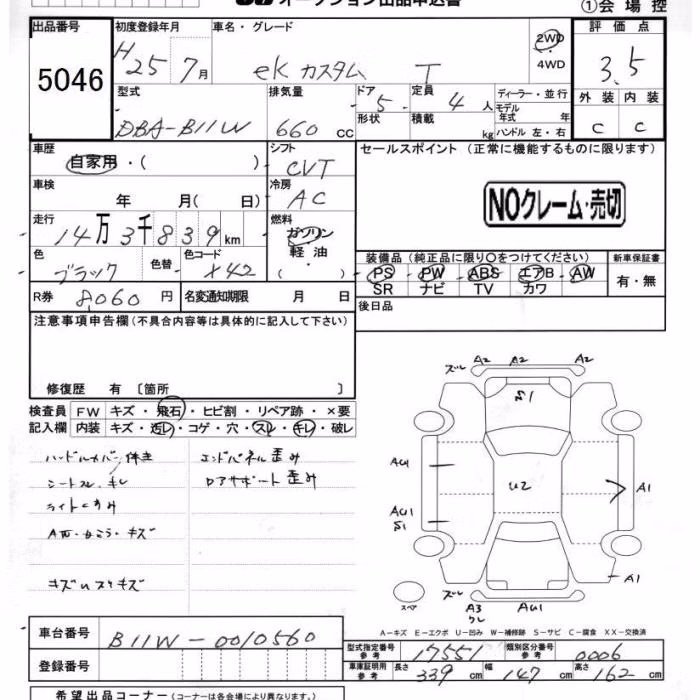 オークション出品申込書 ①会場控
出品番号 初度登録年月 車名・グレード 評価点
5046 H25 7月 ekカスタム T 2WD 4WD 3.5
型式 排気量 ドア 定員 ディーラー・並行 外装 内装
DBA-B11W 660cc 5 4人 モデル年式 年 C C
形状 積載 kg ハンドル 左・右
車歴 シフト セールスポイント (正常に機能するものに限ります)
自家用・( ) CVT
車検 冷房
年 月( 日) AC NOクレーム・売切
走行 燃料
14万3千839km ガソリン 軽油 ( )
色 色替 色コード 装備品 (純正品に限り○をつけてください) 新車保証書
ブラック X42 PS PW ABS エアB AW 有・無
SR ナビ TV カワ
R券 8060円 名変通知期限 月 日 後日品
注意事項申告欄 (不具合内容等は具体的に記入して下さい)
修復歴 有 〔箇所 〕
検査員 FW キズ・飛石・ヒビ割・リペア跡・×要
記入欄 内装 キズ・汚レ・コゲ・穴・スレ・キレ・破レ
ハンドルカバー付き エンドパネル歪み
シートスレ・キレ ロアサポート歪み
ライトくすみ
キズ
キズ スリキズ
ズレ A2 A2 A2
S1
AU1 U2 A1
AU1
S1
A1
スペア ズレ A3 AU1
A-キズ E-エクボ U-凹み W-補修跡 S-サビ C-腐食 XX-交換済
車台番号 B11W-0010560
型式指定番号 参考 17551 類別区分番号 参考 0006
登録番号 車庫証明用 参考 長さ 339cm 幅 147cm 高さ 162cm
希望出品コーナー (コーナーは各会場により異なります。)